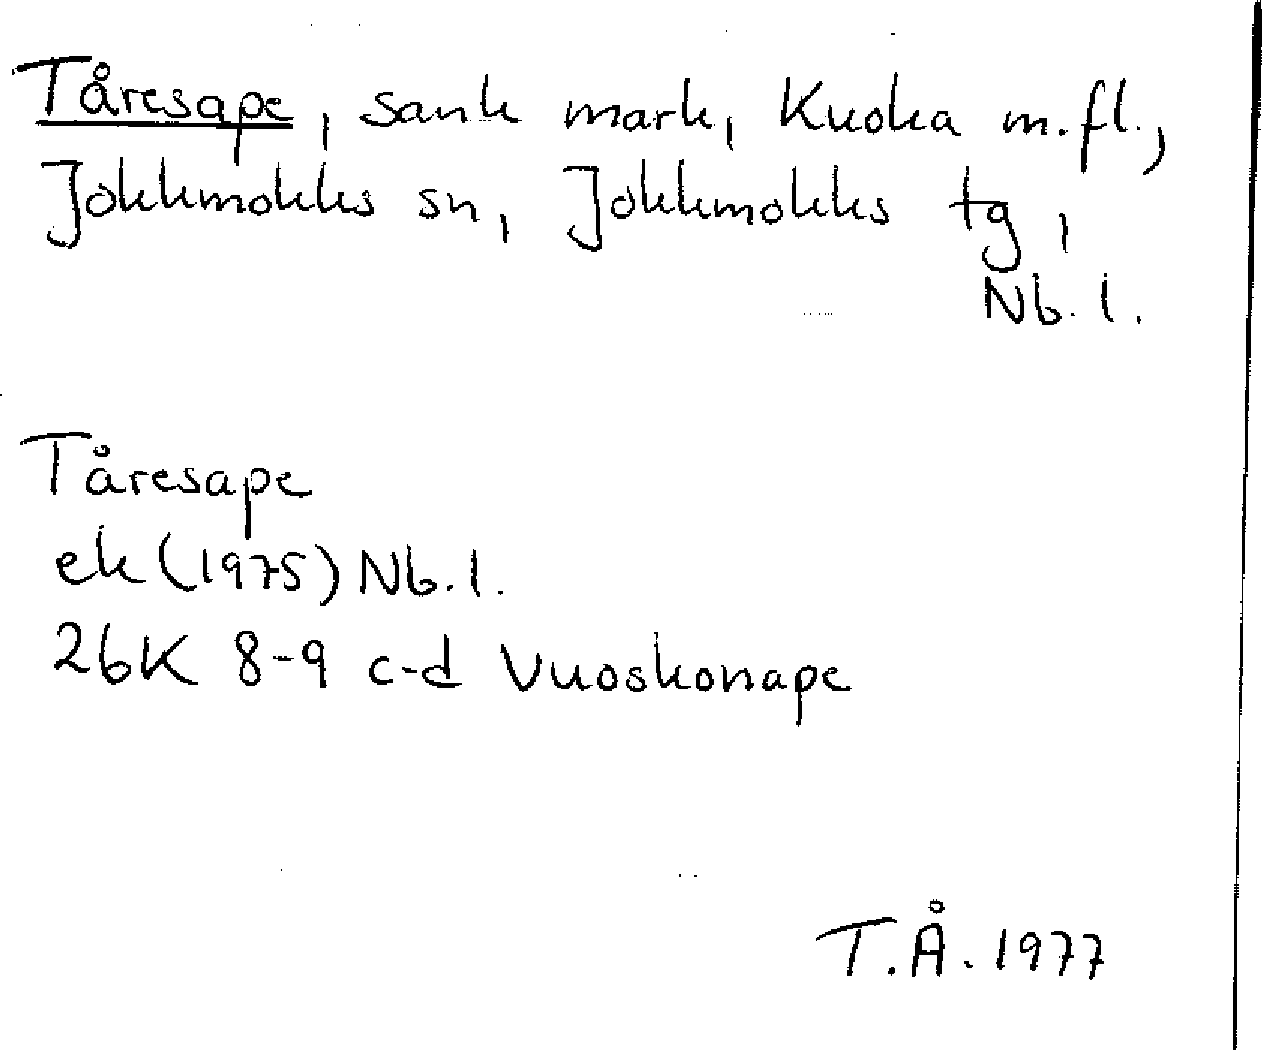 Tåresape, sank mark, Kuoka m.fl.,
Jokkmokks sn, Jokkmokks tg,
Nb. l.
Tåresape
ek (1975) Nb. l.
26K 8-9 c-d Vuoskonape
T.Å. 1977